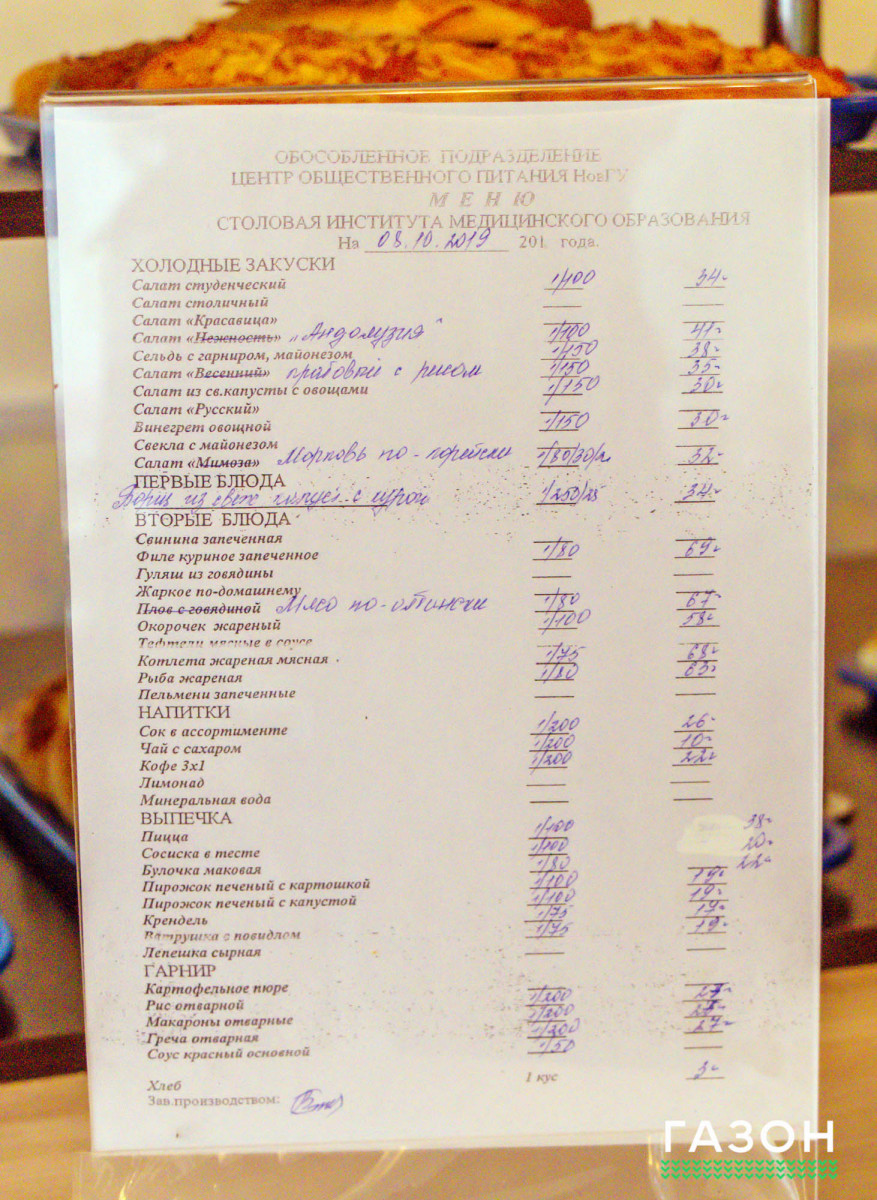 ОБОСОБЛЕННОЕ ПОДРАЗДЕЛЕНИЕ
ЦЕНТР ОБЩЕСТВЕННОГО ПИТАНИЯ НовГУ
М Е Н Ю
СТОЛОВАЯ ИНСТИТУТА МЕДИЦИНСКОГО ОБРАЗОВАНИЯ
На 08.10.2019 201 года.
ХОЛОДНЫЕ ЗАКУСКИ
Салат студенческий 1/100 34-
Салат столичный — —
Салат «Красавица»
Салат «Нежность» "Андолузия" 1/100 41-
Сельдь с гарниром, майонезом 1/150 38-
Салат «Весенний» с рисом 1/150 35-
Салат из св.капусты с овощами 1/150 30-
Салат «Русский»
Винегрет овощной 1/150 30-
Свекла с майонезом
Салат «Мимоза» Морковь по-корейски 32-
ПЕРВЫЕ БЛЮДА
Борщ из свеж капуст. с курой 1/250/25 34-
ВТОРЫЕ БЛЮДА
Свинина запеченная
Филе куриное запеченное 1/80 69-
Гуляш из говядины — —
Жаркое по-домашнему
Плов с говядиной Мясо 1/80 67-
Окорочек жареный 1/100 58-
Тефтели мясные в соусе
Котлета жареная мясная 1/75 68-
Рыба жареная 1/80 63-
Пельмени запеченные — —
НАПИТКИ
Сок в ассортименте 1/200 26-
Чай с сахаром 1/200 10-
Кофе 3х1 1/200 22-
Лимонад — —
Минеральная вода — —
ВЫПЕЧКА
Пицца 1/100 38-
Сосиска в тесте 1/100 20-
Булочка маковая 1/80 22-
Пирожок печеный с картошкой 1/100 19-
Пирожок печеный с капустой 1/100 19-
Крендель 1/75 19-
Ватрушка с повидлом 1/75 19-
Лепешка сырная — —
ГАРНИР
Картофельное пюре
Рис отварной 1/200 27-
Макароны отварные 1/200
Греча отварная 1/200 27-
Соус красный основной 1/50 —
Хлеб 1 кус 3-
Зав.производством:
ГАЗОН